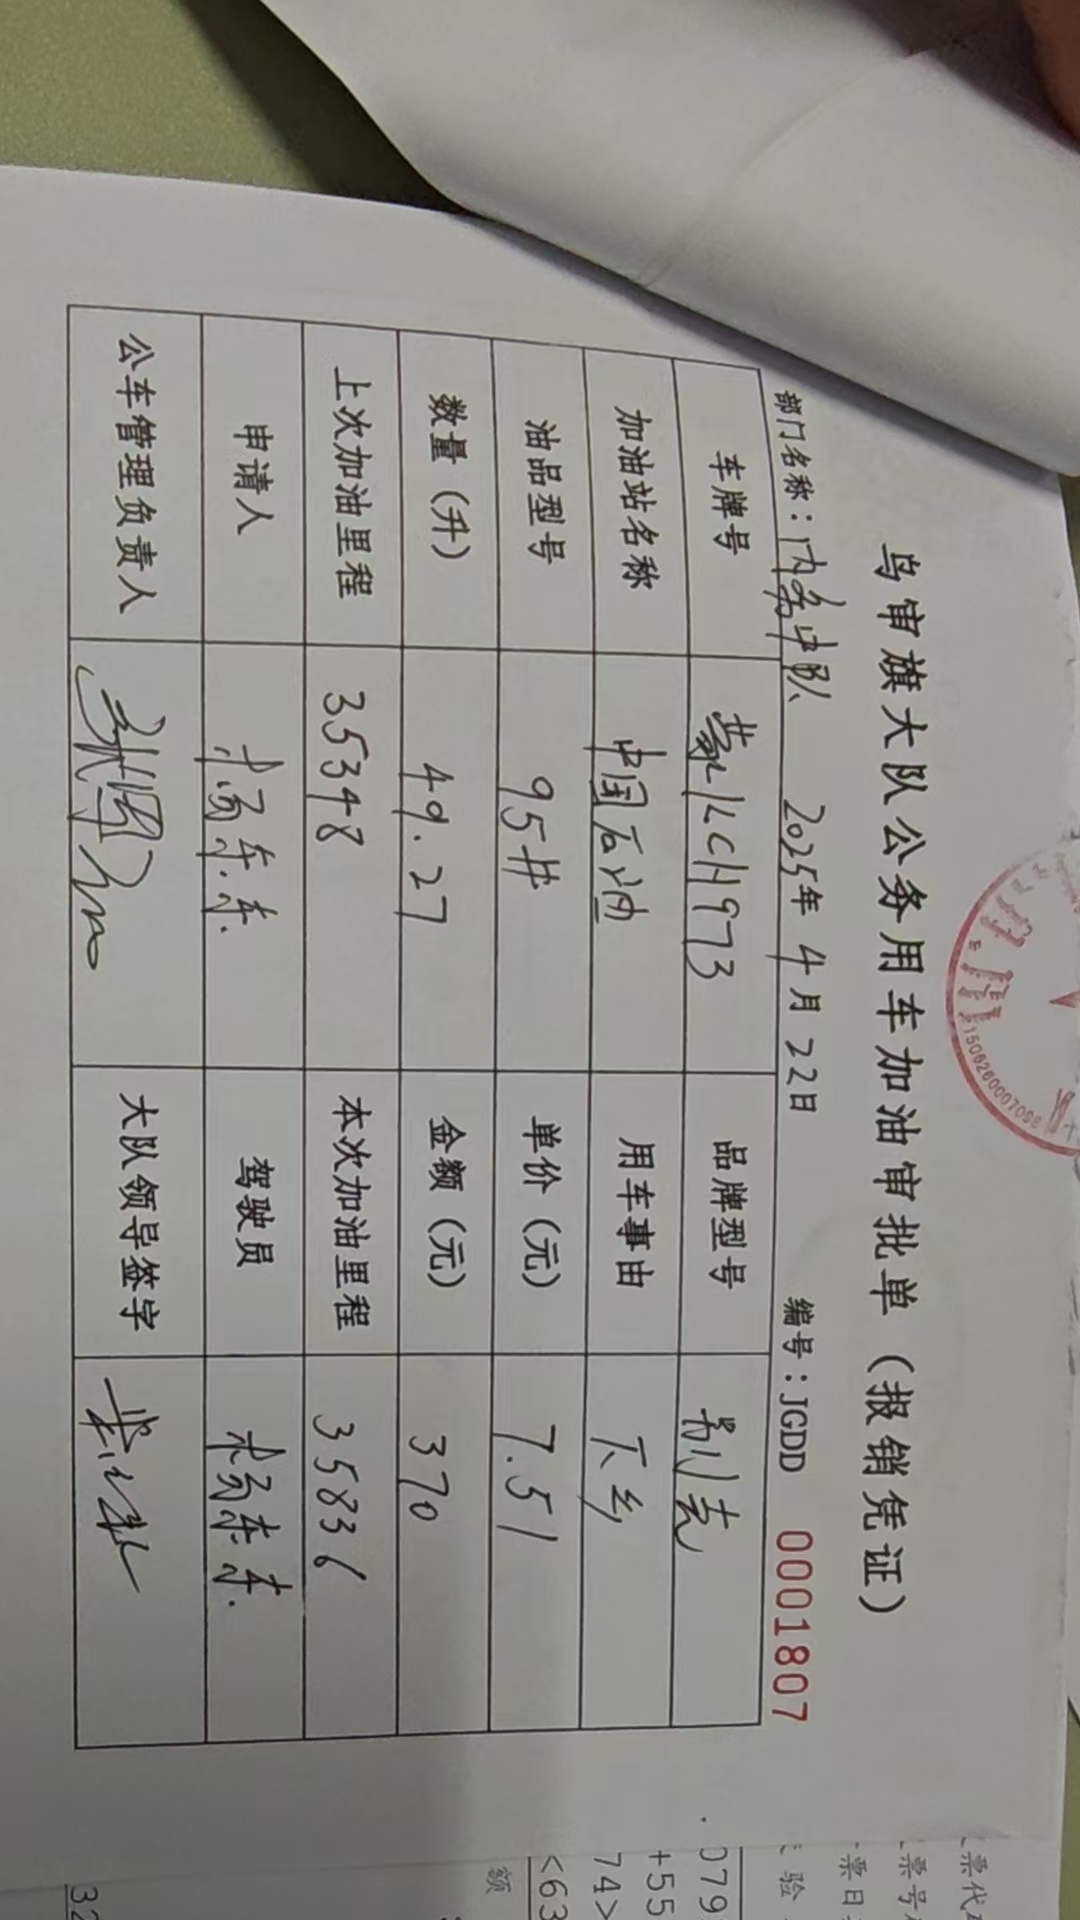 乌审旗大队公务用车加油审批单（报销凭证）
部门名称：内务中队 2025年4月22日 编号：JGDD 0001807
车牌号 蒙KLCH973 品牌型号 别克
加油站名称 中国石油 用车事由 下乡
油品型号 95# 单价（元） 7.51
数量（升） 49.27 金额（元） 370
上次加油里程 35348 本次加油里程 35836
申请人 杨东东 驾驶员 杨东东
公车管理负责人 大队领导签字
1506260007098
票代
票号
票日
验
079
+55
74>
<63
额
32